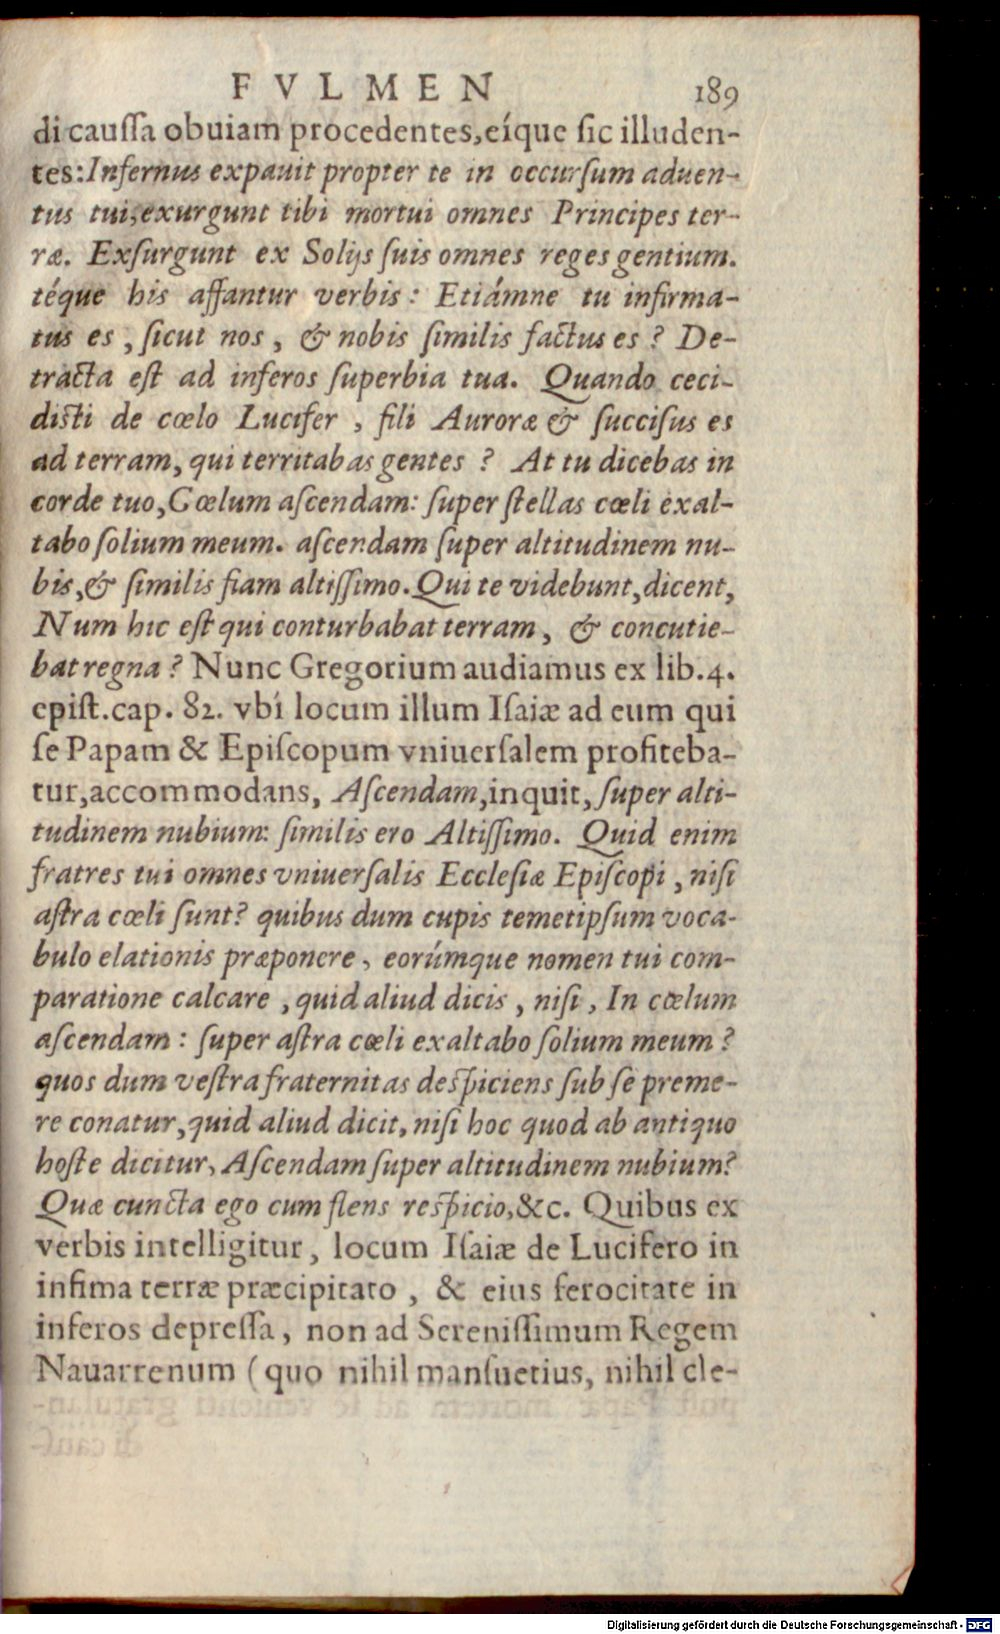 FVLMEN 189
di caussa obuiam procedentes, eíque sic illuden-
tes: Infernus expauit propter te in occursum aduen-
tus tui, exurgunt tibi mortui omnes Principes ter-
ræ. Exsurgunt ex Solijs suis omnes reges gentium.
téque his affantur verbis: Etiámne tu infirma-
tus es, sicut nos, & nobis similis factus es? De-
tracta est ad inferos superbia tua. Quando ceci-
disti de cœlo Lucifer, fili Auroræ & succisus es
ad terram, qui territabas gentes? At tu dicebas in
corde tuo, Cœlum ascendam: super stellas cœli exal-
tabo solium meum. ascendam super altitudinem nu-
bis, & similis fiam altissimo. Qui te videbunt, dicent,
Num hic est qui conturbabat terram, & concutie-
bat regna? Nunc Gregorium audiamus ex lib. 4.
epist. cap. 82. vbí locum illum Isaiæ ad eum qui
se Papam & Episcopum vniuersalem profiteba-
tur, accommodans, Ascendam, inquit, super alti-
tudinem nubium: similis ero Altissimo. Quid enim
fratres tui omnes vniuersalis Ecclesiæ Episcopi, nisi
astra cœli sunt? quibus dum cupis temetipsum voca-
bulo elationis præponere, eorúmque nomen tui com-
paratione calcare, quid aliud dicis, nisi, In cœlum
ascendam: super astra cœli exaltabo solium meum?
quos dum vestra fraternitas despiciens sub se preme-
re conatur, quid aliud dicit, nisi hoc quod ab antiquo
hoste dicitur, Ascendam super altitudinem nubium?
Quæ cuncta ego cum flens respicio, &c. Quibus ex
verbis intelligitur, locum Isaiæ de Lucifero in
infima terræ præcipitato, & eius ferocitate in
inferos depressa, non ad Serenissimum Regem
Nauarrenum (quo nihil mansuetius, nihil cle-
Digitalisierung gefördert durch die Deutsche Forschungsgemeinschaft - DFG